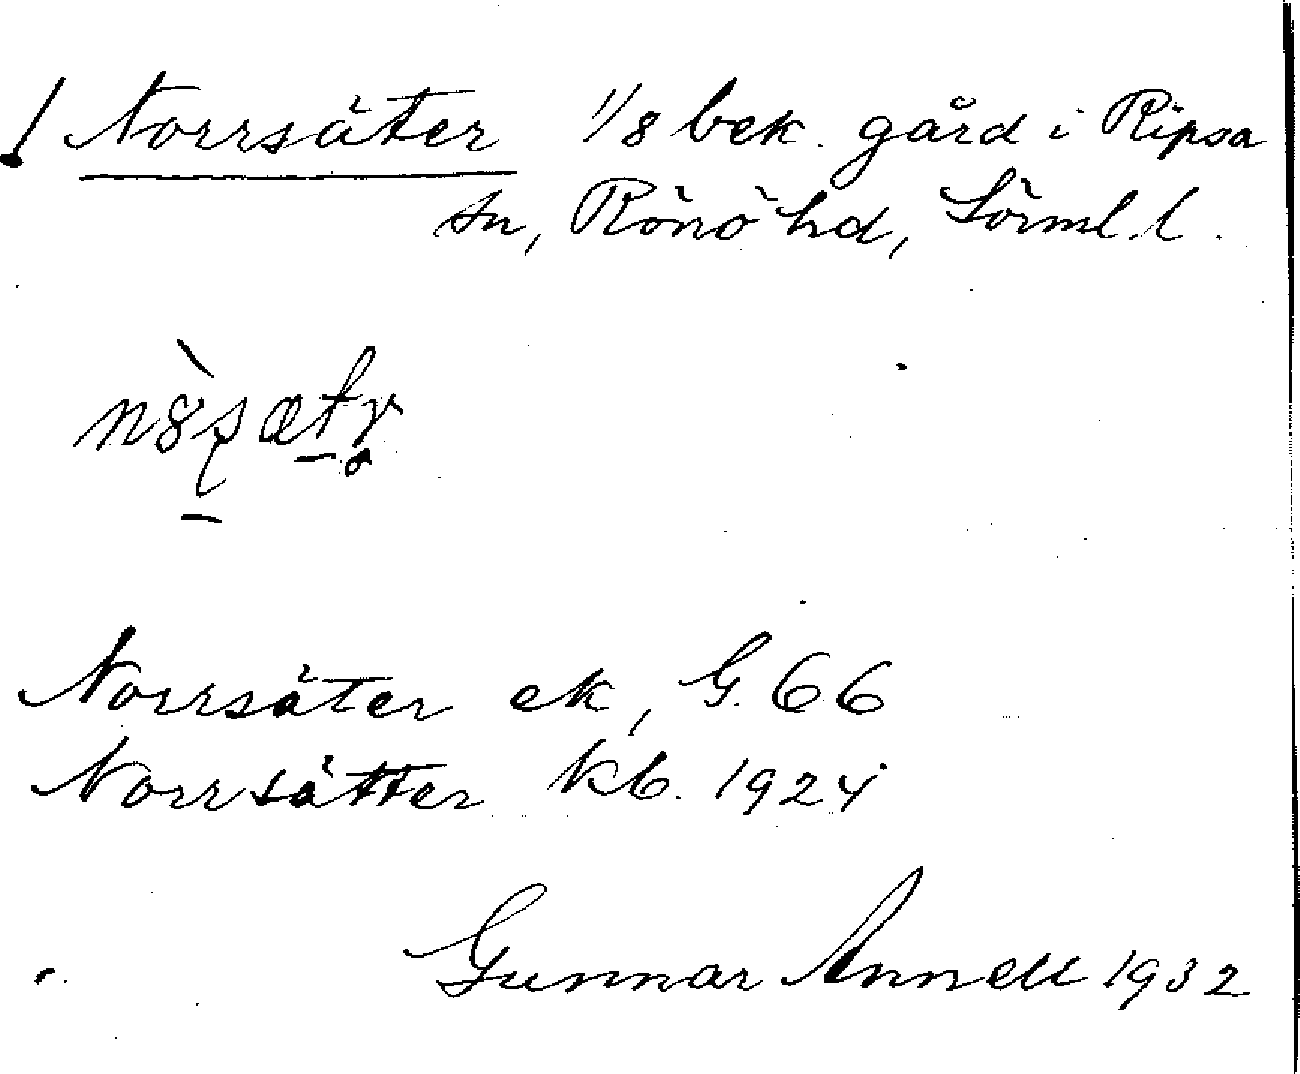 ! Norrsäter 1/8 bek. gård i Ripsa
sn, Rönö hd, Sörml. l.
Norrsäter ek, G. 66
Norrsätter kb. 1924
Gunnar Annell 1932